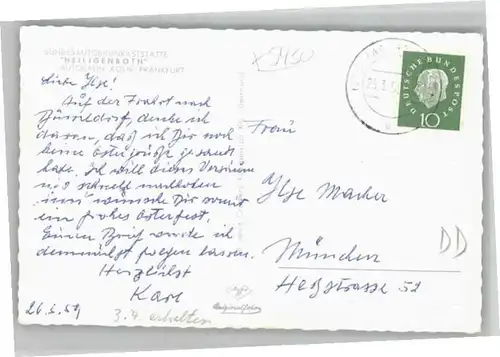 BUNDESAUTOBAHNRASTSTÄTTE
"HEILIGENROTH"
AUTOBAHN KÖLN-FRANKFURT
DEUTSCHE BUNDESPOST
10
Liebe Ilse!
Auf der Fahrt nach
Düsseldorf, denke ich
daran, daß ich Dir noch
keine Ostergrüße gesandt
habe. Ich will dieses Versäumnis
schnell nachholen
und wünsche Dir somit
ein frohes Osterfest.
Einen Brief werde ich
demnächst folgen lassen.
Herzlichst
Karl
26.3.59
3.4. erhalten
Frau
Ilse Macher
München
Heßstrasse 52
DD
Agfa
Originalfoto